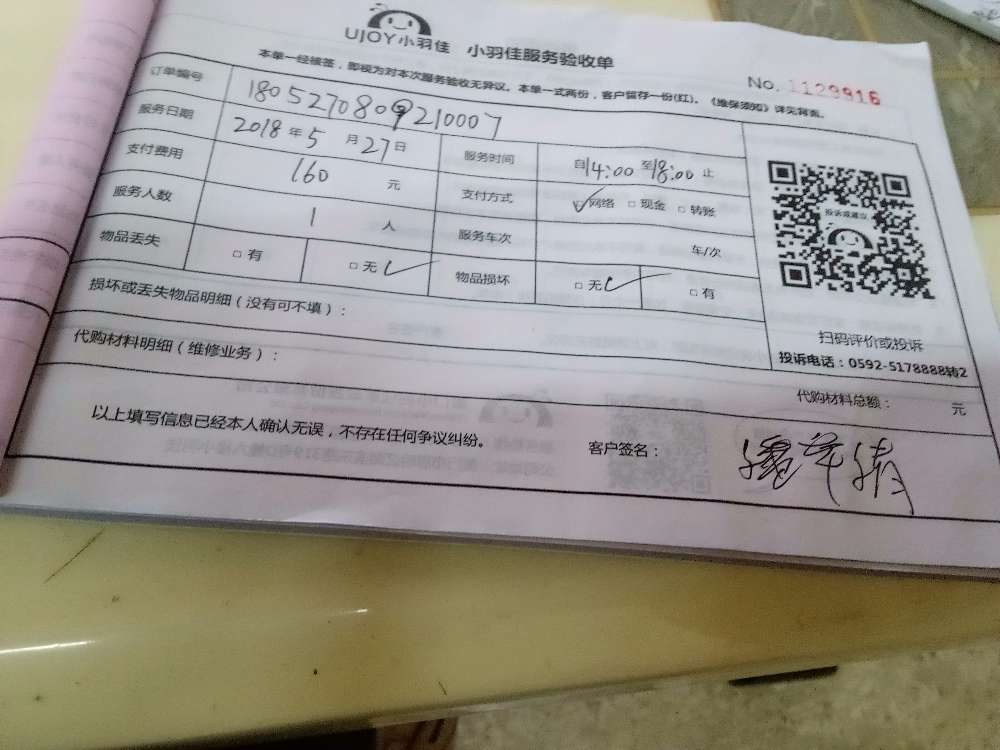 UJOY小羽佳 小羽佳服务验收单
No. 1129916
本单一经接签，即视为对本次服务验收无异议。本单一式两份，客户留存一份(红)。《维保须知》详见背面。
订单编号 1805270809210007
服务日期 2018年5月27日 服务时间 自14:00至18:00止
支付费用 160 元 支付方式 □网络 □现金 □转账
服务人数 1 人 服务车次 车/次
物品丢失 □有 □无✓ 物品损坏 □无✓ □有
投诉或建议
扫码评价或投诉
投诉电话：0592-5178888转2
损坏或丢失物品明细（没有可不填）：
代购材料明细（维修业务）：
代购材料总额： 元
以上填写信息已经本人确认无误，不存在任何争议纠纷。 客户签名：